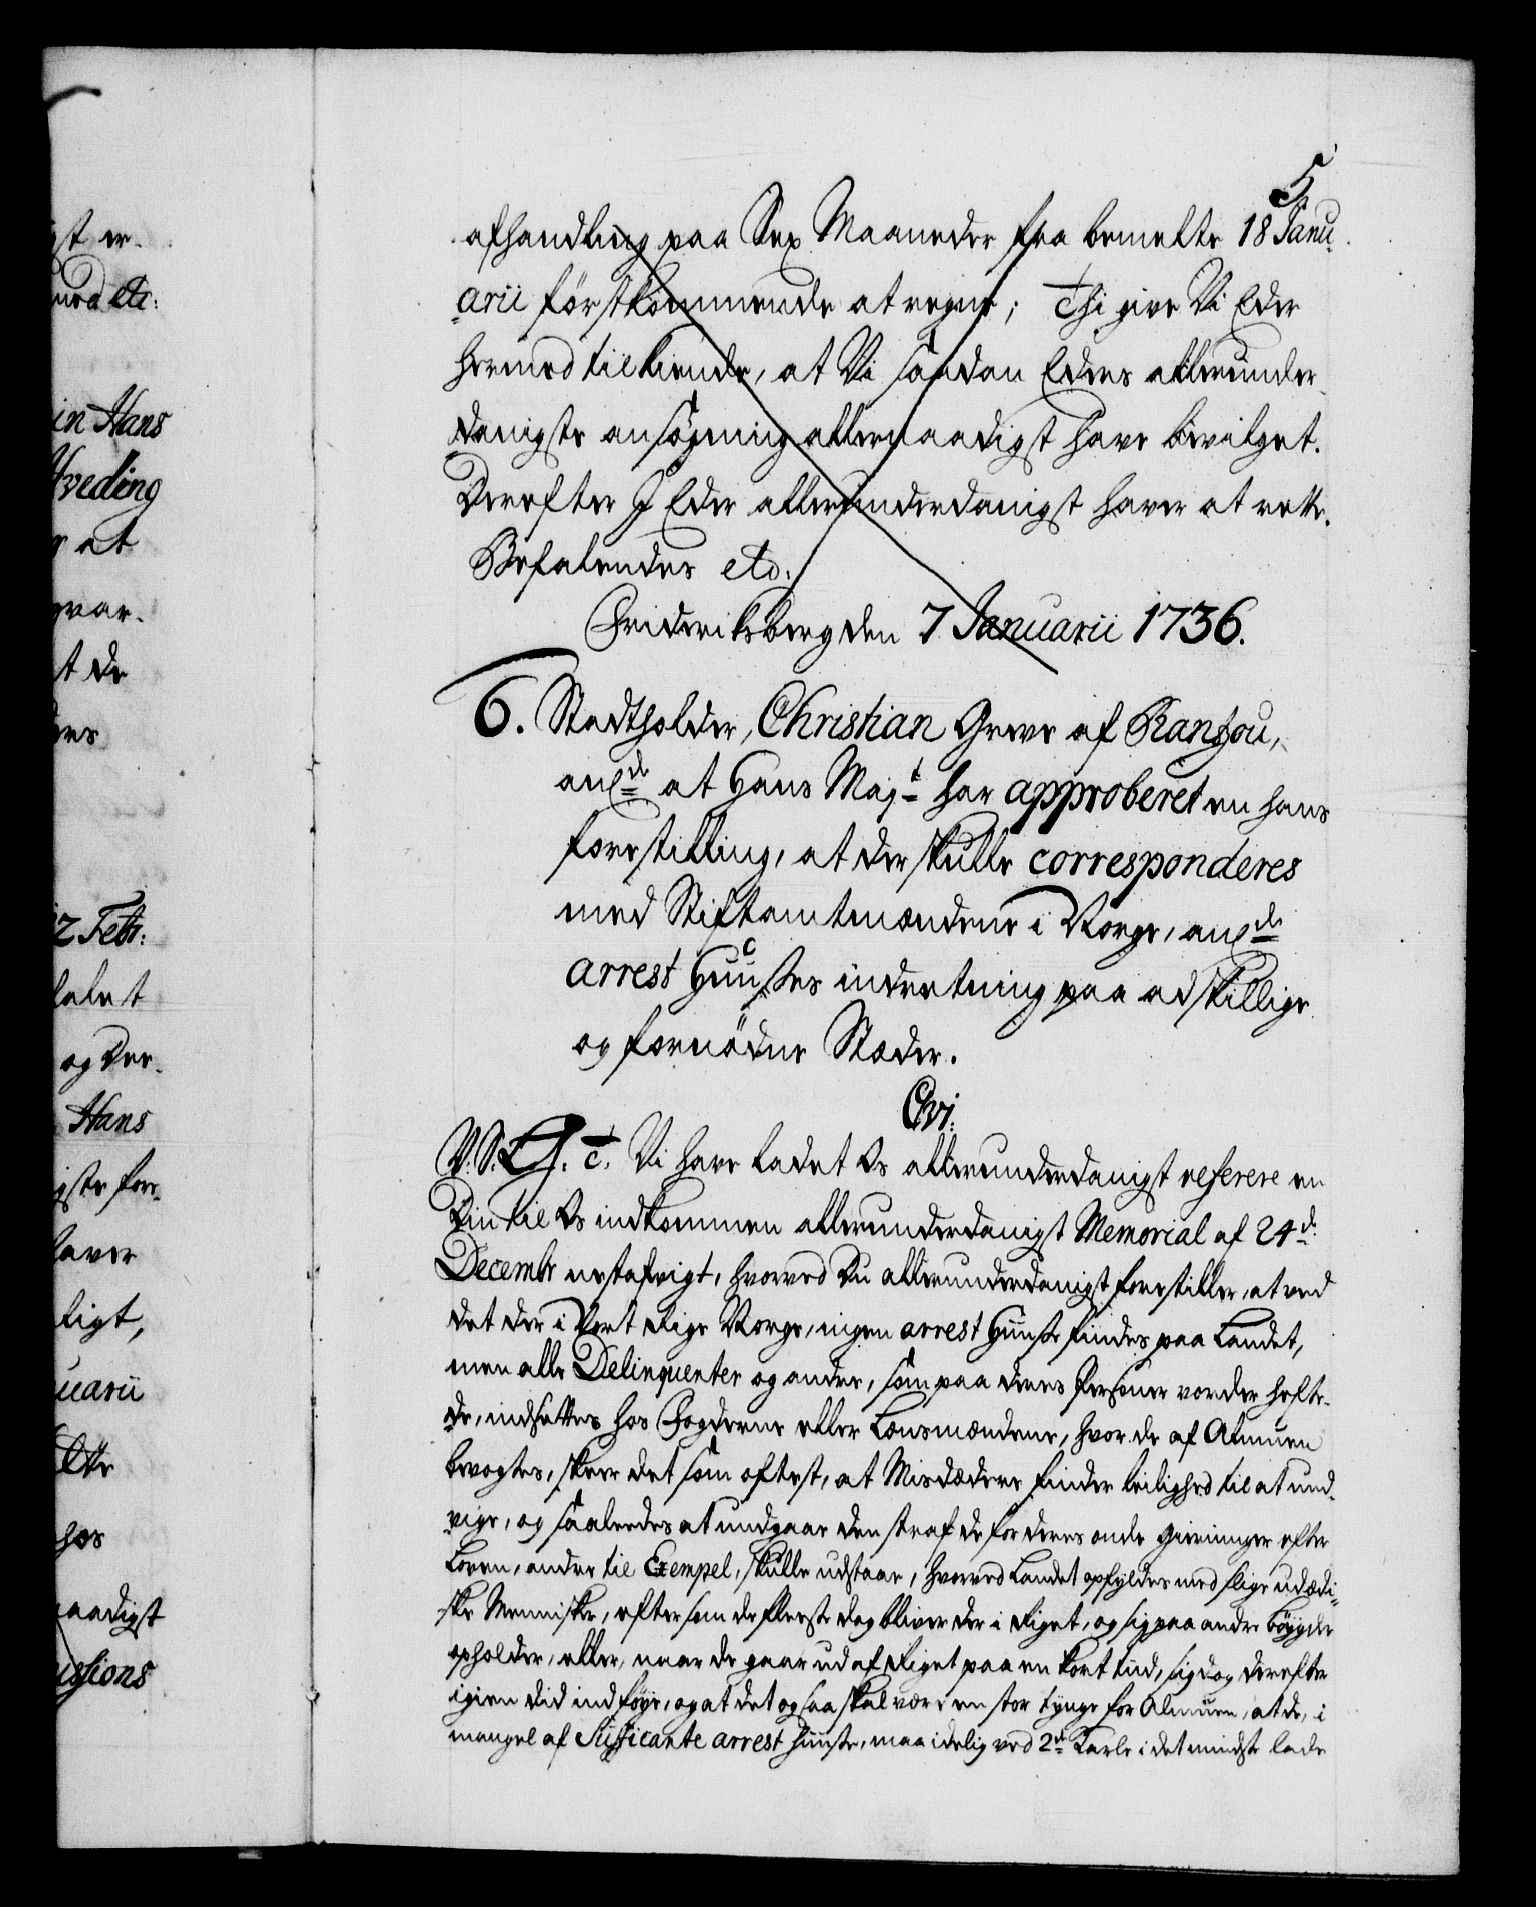 5
gst er
med etc:
in Hans
Hveding
r at
qvar-
t de
2 Febr:
og der-
Hans
gste for-
haver
ligt,
uarii
hos
naadigst
ussions
afhandling paa Sex Maaneder fra bemelte 18 Janu-
arii förstkommende at regne; Thi give Vi Eder
hermed tilkiende, at Vi saadan Eders allerunder-
danigste ansøgning allernaadigst have bevilget.
Derefter I Eder allerunderdanigst haver at rette.
Befalendes etc.
Friderichsberg den 7 Januarii 1736.
6. Stadtholder, Christian Greve af Ranzou,
angde at Hans Majt har approberet en hans
forestilling, at der skulle corresponderes
med Stiftamtmændene i Norge, angde
arrest Huusses indretning paa adskillige
og fornödne Stæder.
Cvi.
V. S. G. t. Vi have ladet Os allerunderdanigst referere en
Din til Os indkommen allerunderdanigst Memorial af 24de
Decembr nestafvigt, hvorved Du allerunderdanigst forestiller, at ved
det der i Vort Rige Norge, ingen arrest Huuse findes paa Landet,
men alle Delinqventer og andre, som paa deres Personer vorder hefte-
de, indsettes hos Fogderne eller Lensmændene, hvor de af Almuen
bevogtes, skeer det som oftest, at Misdædere finder leilighed til at und-
vige, og saaledes at undgaae den straf de for deres onde Gierninger efter
Loven, andre til Exempel, skulle udstaae, hvorved Landet opfyldes med slige udædi-
ske Mennisker, eftersom de fleeste dog bliver der i Riget, og sig paa andre böygder
opholder, eller, naar de gaar ud af Riget paa en kort tiid, sig dog derefter
igien did ind föye, og at det ogsaa skal være en stor tynge for Almuen, at de, i
mangel af Sufficante arrest huuse, maa idelig ved 2de Karle i det mindste lade